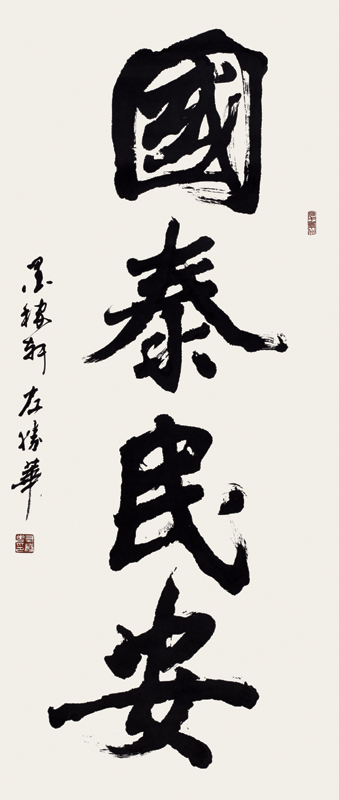 國泰民安
墨稼軒 左勝華